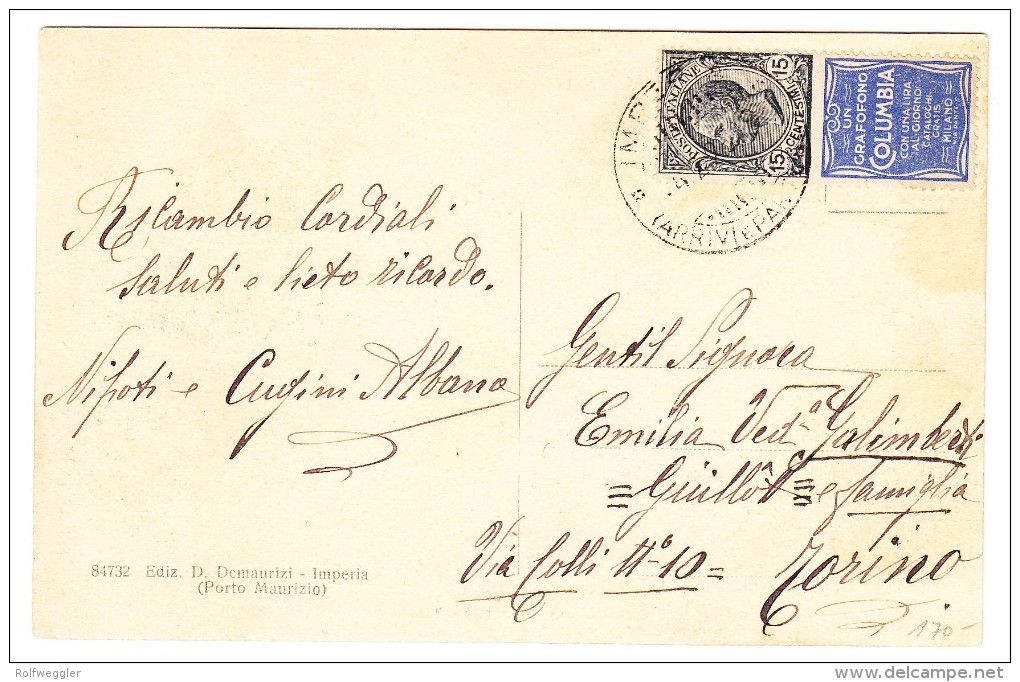 Ricambio Cordiali
Saluti e lieto ricordo.
Nipoti e Cugini Albana
84732 Ediz. D. Demaurizi - Imperia
(Porto Maurizio)
POSTE ITALIANE
15 CENTESIMI 15
UN
GRAFOFONO
COLUMBIA
CON UNA LIRA
AL GIORNO
CATALOGHI
GRATIS
MILANO
VIA DANTE
(ARRIVI E PAR
Gentil Signora
Emilia Ved.a Galimberti
= Guillôt = e famiglia
Via Colli N.o 10 = Torino
170-
Rolfweggler
www.delcampe.net